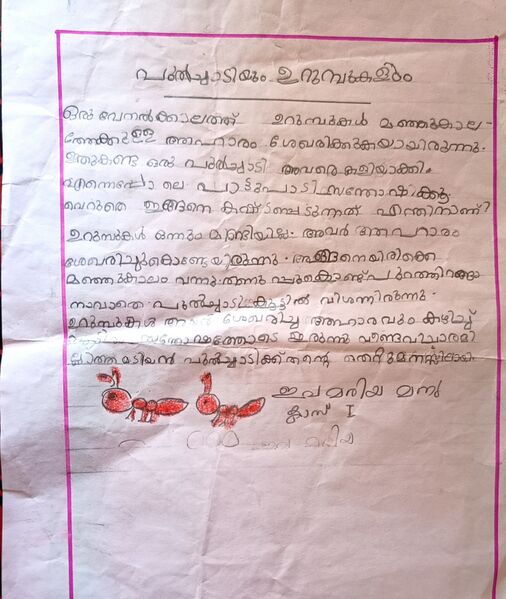 പുൽച്ചാടിയും ഉറുമ്പുകളും
ഒരു വേനൽക്കാലത്ത് ഉറുമ്പുകൾ മഞ്ഞുകാല-
ത്തേക്കുള്ള ആഹാരം ശേഖരിക്കുകയായിരുന്നു.
ഇതുകണ്ട ഒരു പുൽച്ചാടി അവരെ കളിയാക്കി.
എന്നെപ്പോ ലെ പാട്ടുപാടി സന്തോഷിക്കൂ
വെറുതെ ഇങ്ങനെ കഷ്ടപ്പെടുന്നത് എന്തിനാണ്?
ഉറുമ്പുകൾ ഒന്നും മിണ്ടിയില്ല. അവർ ആഹാരം
ശേഖരിച്ചുകൊണ്ടേയിരുന്നു. അങ്ങനെയിരിക്കെ
മഞ്ഞുകാലം വന്നു. തണുപ്പുകൊണ്ട് പുറത്തിറങ്ങാ
നാവാതെ പുൽച്ചാടി കൂട്ടിൽ വിശന്നിരുന്നു.
ഉറുമ്പുകൾ ശേഖരിച്ച ആഹാരവും കഴിച്ച്
സന്തോഷത്തോടെ ഇരുന്നു
മടിയൻ പുൽച്ചാടിക്ക് തന്റെ തെറ്റ് മനസ്സിലായി
ഇവ മരിയ മനു
ക്ലാസ് I
മരിയ